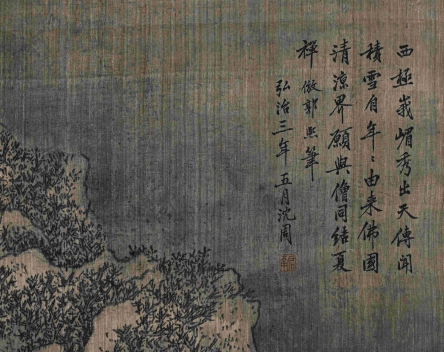 西極峩嵋秀出天傳聞
積雪自年〻由来佛國
清涼界願與僧同結夏
禪 倣郭熙筆
弘治三年五月沈周